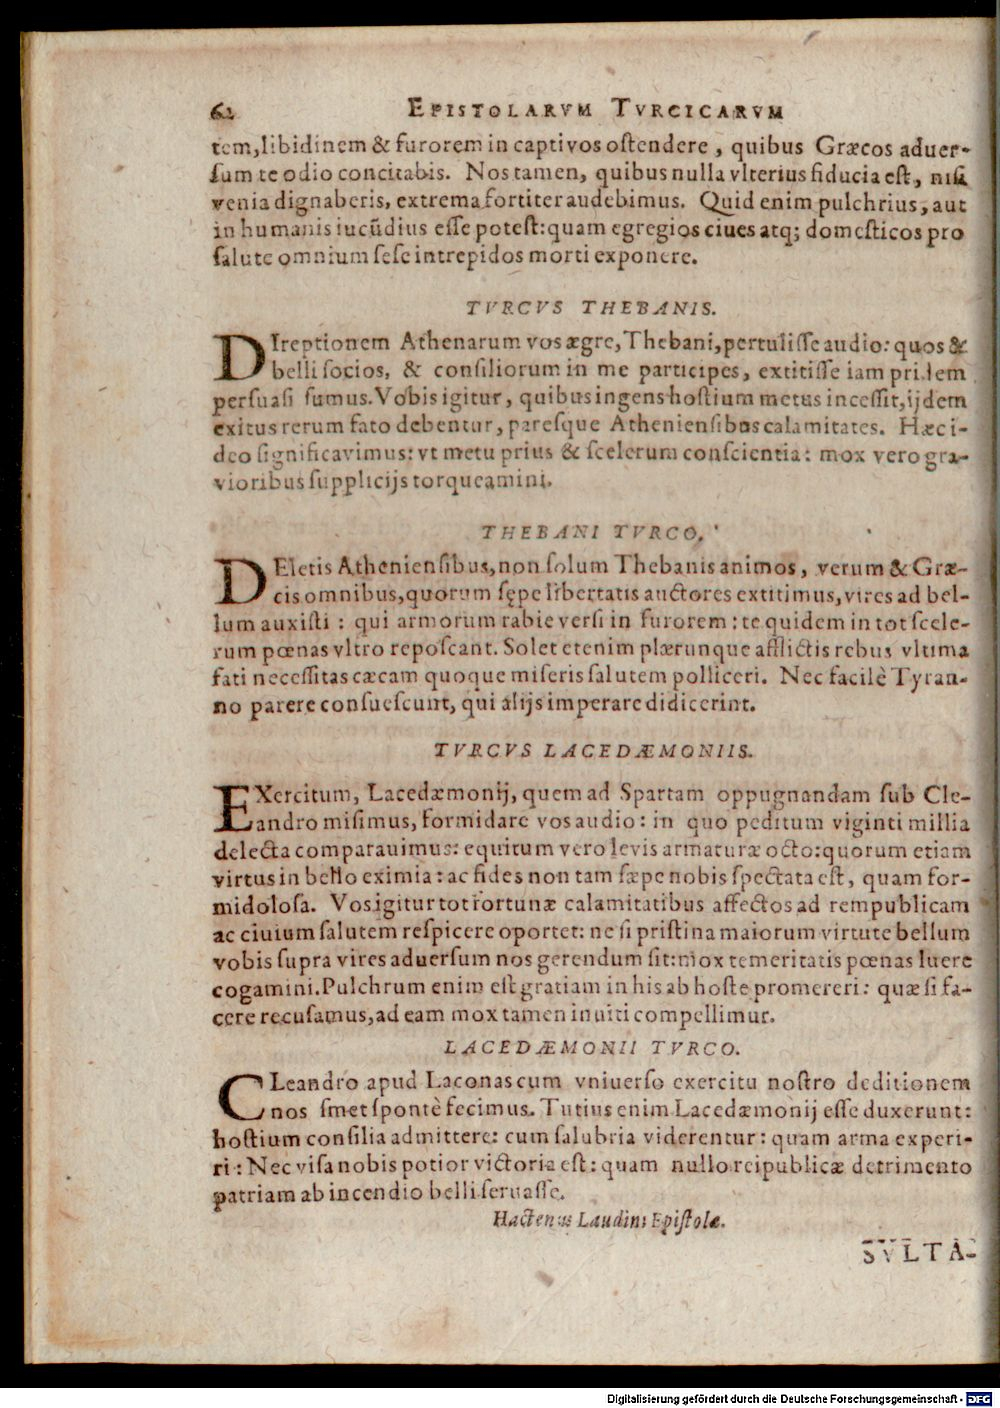 62 EPISTOLARVM TVRCICARVM
tem, libidinem & furorem in captivos ostendere, quibus Græcos aduer-
sum te odio concitabis. Nos tamen, quibus nulla vlterius fiducia est, nisi
venia dignaberis, extrema fortiter audebimus. Quid enim pulchrius, aut
in humanis iucũdius esse potest: quam egregios ciues atq; domesticos pro
salute omnium sese intrepidos morti exponere.
TVRCVS THEBANIS.
DIreptionem Athenarum vos ægre, Thebani, pertulisse audio: quos &
belli socios, & consiliorum in me participes, extitisse iam pridem
persuasi sumus. Vobis igitur, quibus ingens hostium metus incessit, ijdem
exitus rerum fato debentur, paresque Atheniensibus calamitates. Hæc i-
deo significavimus: vt metu prius & scelerum conscientia: mox vero gra-
vioribus supplicijs torqueamini.
THEBANI TVRCO.
DEletis Atheniensibus, non solum Thebanis animos, verum & Græ-
cis omnibus, quorum sępe libertatis auctores extitimus, vires ad bel-
lum auxisti: qui armorum rabie versi in furorem: te quidem in tot scele-
rum pœnas vltro reposcant. Solet etenim plærunque afflictis rebus vltima
fati necessitas cæcam quoque miseris salutem polliceri. Nec facilè Tyran-
no parere consuescunt, qui alijs imperare didicerint.
TVRCVS LACEDÆMONIIS.
EXercitum, Lacedæmonij, quem ad Spartam oppugnandam sub Cle-
andro misimus, formidare vos audio: in quo peditum viginti millia
delecta comparauimus: equitum vero levis armaturæ octo: quorum etiam
virtus in bello eximia: ac fides non tam sæpe nobis spectata est, quam for-
midolosa. Vos igitur tot fortunæ calamitatibus affectos ad rempublicam
ac ciuium salutem respicere oportet: ne si pristina maiorum virtute bellum
vobis supra vires aduersum nos gerendum sit: mox temeritatis pœnas luere
cogamini. Pulchrum enim est gratiam in his ab hoste promereri: quæ si fa-
cere recusamus, ad eam mox tamen inuiti compellimur.
LACEDÆMONII TVRCO.
CLeandro apud Laconas cum vniuerso exercitu nostro deditionem
nos smet spontè fecimus. Tutius enim Lacedæmonij esse duxerunt:
hostium consilia admittere: cum salubria viderentur: quam arma experi-
ri: Nec visa nobis potior victoria est: quam nullo reipublicæ detrimento
patriam ab incendio belli seruasse.
Hactenus Laudini Epistolæ.
SVLTA-
Digitalisierung gefördert durch die Deutsche Forschungsgemeinschaft - DFG